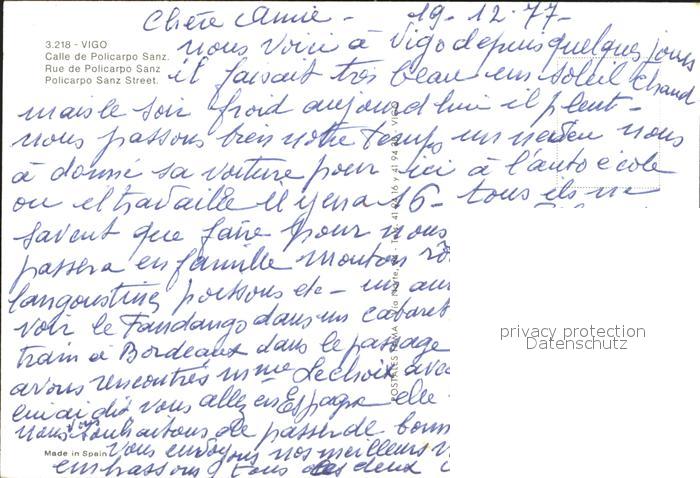 Chère Amie - 19-12-77-
3.218 - VIGO
Calle de Policarpo Sanz.
Rue de Policarpo Sanz
Policarpo Sanz Street.
Nous voici à Vigo depuis quelques jours
il faisait très beau un soleil chaud
mais le soir froid aujourd'hui il pleut -
nous passons bien notre temps un neveu nous
à donné sa voiture pour ici à l'auto école
ou el travaille il y en a 16 - tous ils ne
savent que faire pour nous
passera en famille mouton
langoustines poissons etc - un
voir le Fandango dans un cabaret
train à Bordeaux dans le passage
avons rencontrés mme Lechoix avec
lui ai dit vous allez en Espagne elle
nous vous souhaitons de passer de bonn
vous envoyons nos meilleurs v
embrassons tous les deux
Made in Spain
POSTALES
privacy protection
Datenschutz